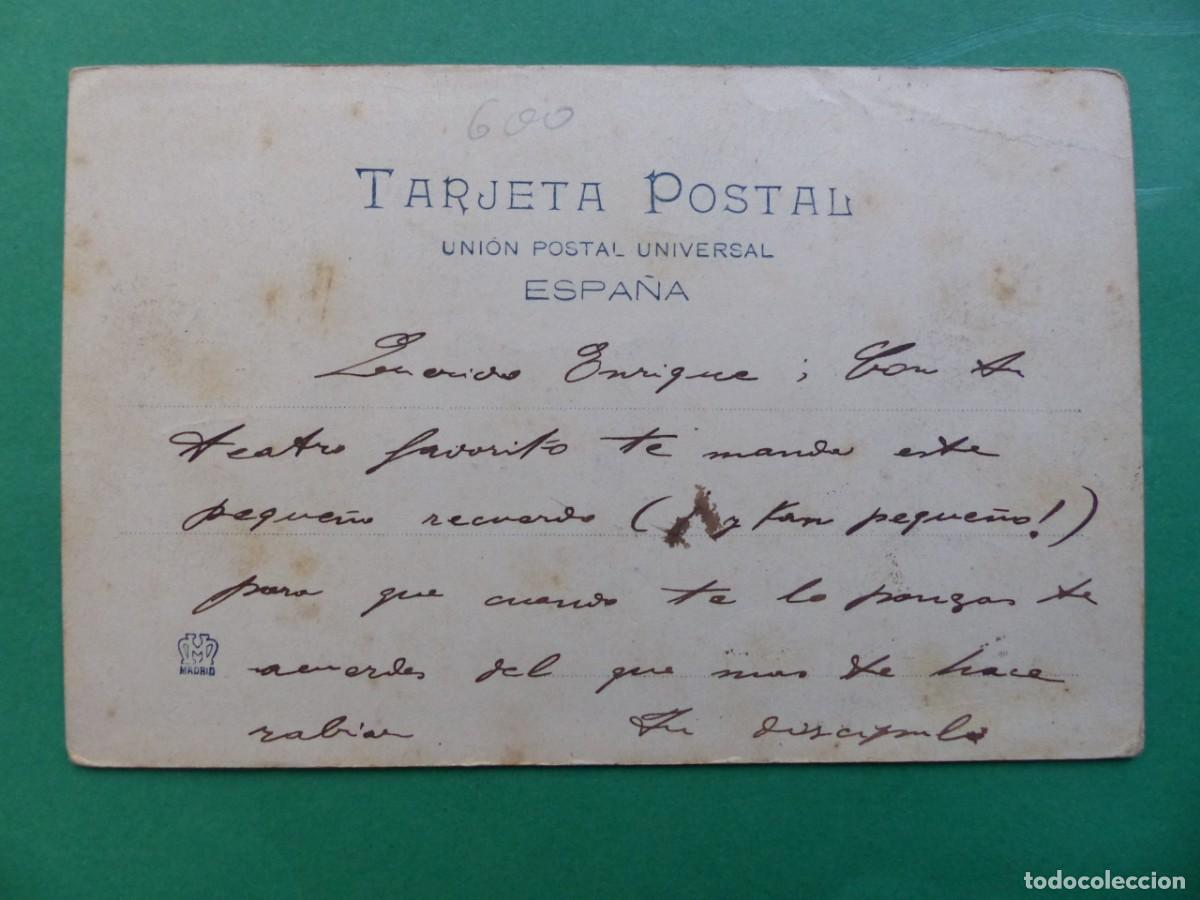 600
TARJETA POSTAL
UNIÓN POSTAL UNIVERSAL
ESPAÑA
Querido Enrique; Con tu
teatro favorito te manda este
pequeño recuerdo (¡y tan pequeño!)
para que cuando te lo pongas te
acuerdes del que mas te hace
rabiar Tu discipulo
MADRID
todocoleccion